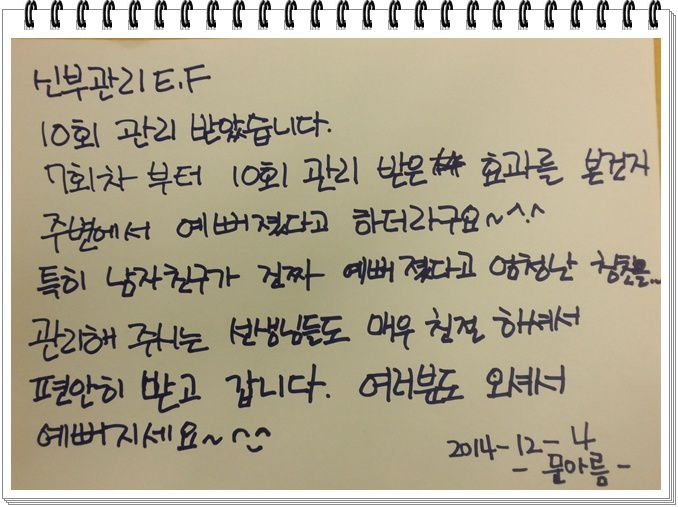 신부관리 E.F
10회 관리 받았습니다.
7회차 부터 10회 관리 받은 효과를 본건지
주변에서 예뻐졌다고 하더라구요~^.^
특히 남자친구가 진짜 예뻐졌다고 엄청난 칭찬을...
관리해 주시는 선생님들도 매우 친절 하셔서
편안히 받고 갑니다. 여러분도 오셔서
예뻐지세요~^^
2014-12-4
- 문아름 -